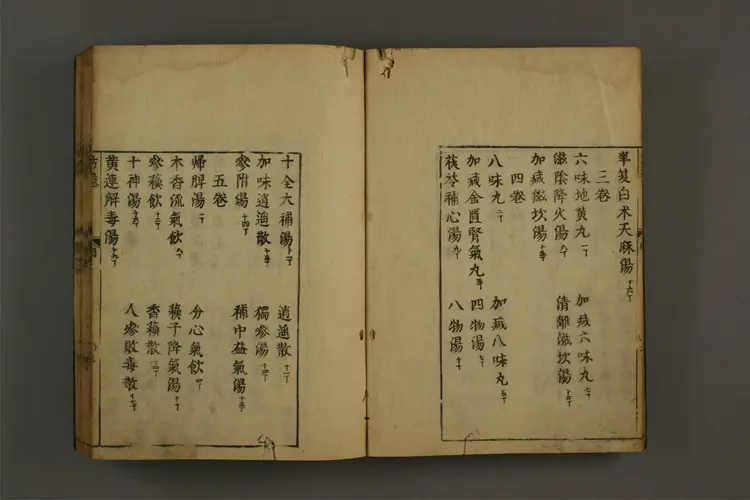 半夏白朮天麻湯 十六丁
三卷
六味地黄丸 一丁 加减六味丸 七丁
滋陰降火湯 八丁 清離滋坎湯
加减滋坎湯
四卷
八味丸 二丁 加减八味丸 五丁
加减金匱腎氣丸 四物湯 七丁
茯苓補心湯 九丁 八物湯 十丁
十全大補湯 十一丁 逍遥散 十一丁
加味逍遥散 獨參湯 十四丁
參附湯 十四丁 補中益氣湯
五卷
帰脾湯 一丁 分心氣飲 四丁
木香流氣飲 六丁 蘓子降氣湯 十丁
參蘓飲 香蘓散 十四丁
十神湯 人參敗毒散 十七丁
黄連解毒湯 十九丁